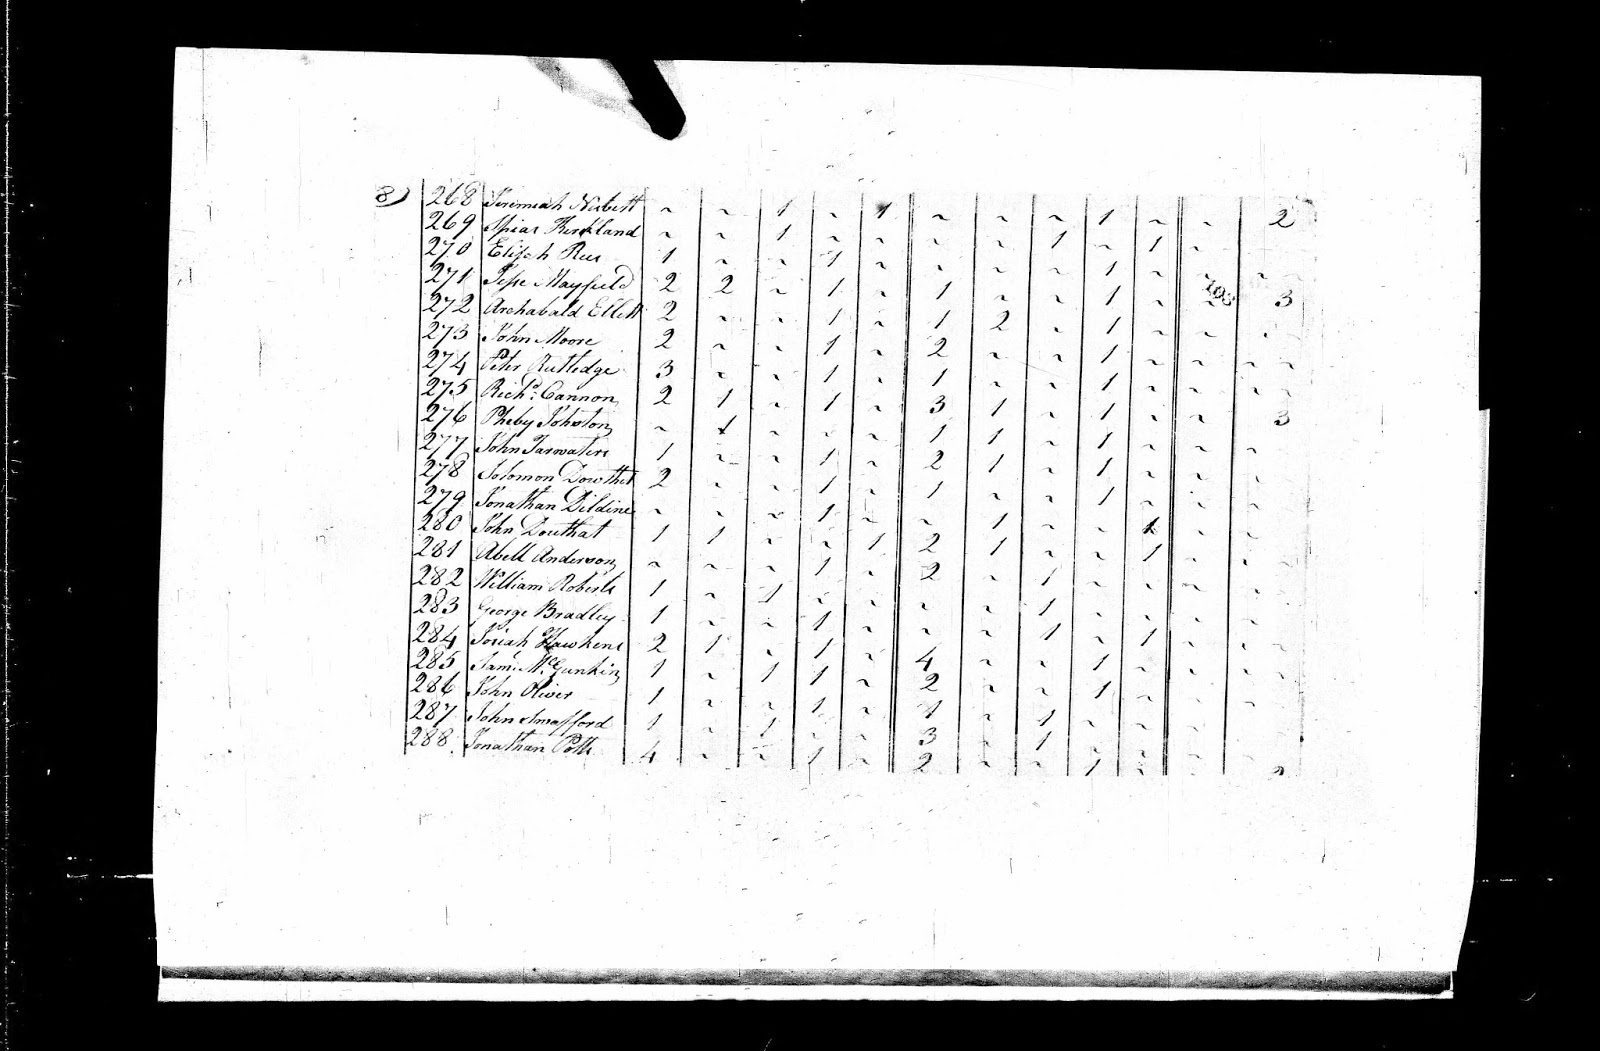 8) 268 Jeremiah Nisbett ~ ~ 1 ~ 1 ~ ~ ~ 1 ~ ~ 2
269 Spiar Kirkland ~ ~ 1 ~ ~ ~ ~ 1 ~ 1 ~
270 Elijah Rees 1 ~ ~ 1 ~ ~ ~ ~ 1 ~ ~ ~
271 Jesse Mayfield 2 2 ~ 1 ~ 1 ~ ~ 1 ~ 103 3
272 Archabald Ellett 2 ~ ~ 1 ~ 1 2 ~ 1 ~ ~
273 John Moore 2 ~ ~ 1 ~ 2 ~ ~ 1 ~ ~ ~
274 Peter Rutledge 3 ~ ~ 1 ~ 1 ~ ~ 1 ~ ~ ~
275 Richd. Cannon 2 1 ~ 1 ~ 3 1 ~ 1 ~ ~ 3
276 Pheby Johnston ~ 1 ~ ~ ~ 1 1 ~ 1 ~ ~ ~
277 John Tarwaters 1 ~ ~ 1 ~ 2 1 ~ 1 ~ ~ ~
278 Solomon Dowthet 2 ~ ~ 1 ~ 1 ~ ~ 1 ~ ~ ~
279 Jonathan Dildine ~ ~ ~ 1 ~ ~ 1 ~ ~ 1 ~ ~
280 John Douthat 1 1 ~ ~ 1 2 1 ~ ~ 1 ~ ~
281 Abell Anderson ~ ~ ~ 1 ~ 2 ~ 1 ~ ~ ~ ~
282 William Roberts 1 ~ 1 ~ ~ ~ ~ 1 ~ ~ ~ ~
283 George Bradley 1 ~ ~ 1 ~ ~ ~ 1 ~ 1 ~ ~
284 Josiah Hawkens 2 1 ~ 1 ~ 4 ~ ~ 1 ~ ~ ~
285 Saml. McGunkin 1 ~ 1 1 ~ 2 ~ ~ 1 ~ ~ ~
286 John Oliver 1 ~ ~ 1 ~ 1 ~ 1 ~ ~ ~ ~
287 John Smafford 1 ~ 1 ~ ~ 3 ~ 1 ~ ~ ~ ~
288 Jonathan Potts 4 ~ ~ 1 ~ 2 ~ ~ 1 ~ ~ 2